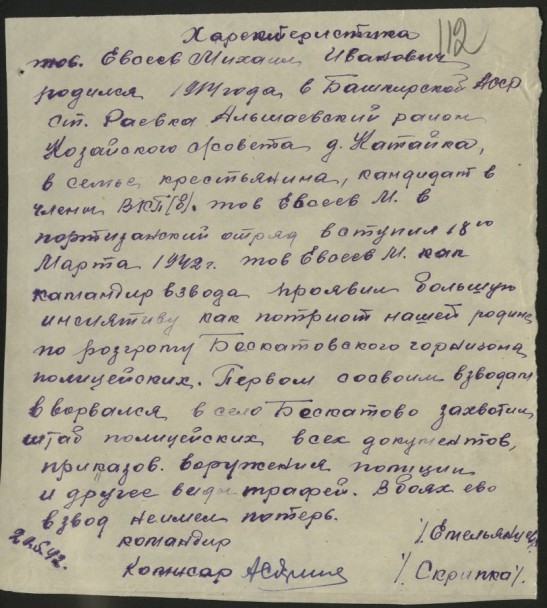 Характеристика
112
тов. Евсеев Михаил Иванович
родился 1914 года в Башкирской АССР
ст. Раевка Альшаевский район
Козайского с/совета д. Натайка,
в семье крестьянина, кандидат в
члены ВКП(б). тов Евсеев М. в
портизанский отряд вступил 18го
Марта 1942г. тов Евсеев М. как
камандир взвода проявил большую
инсиятиву как потриот нашей родине
по розгрому Бескатовского горнизона
полицейских. Первом сосвоим взводам
вворвался в село Бескатово захвотил
штаб полицейских всех документов,
приказов. воружения полиции
и другее виды трафей. В боях ево
взвод неимел потерь.
командир /Емельянич/
22.5.42.
Комисар /Скрипка/.